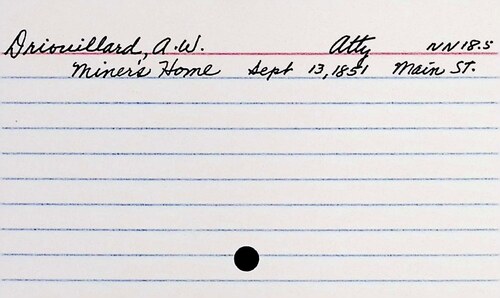 Driouillard, A.W. Atty NN18.5
Miner's Home Sept 13, 1851 Main St.